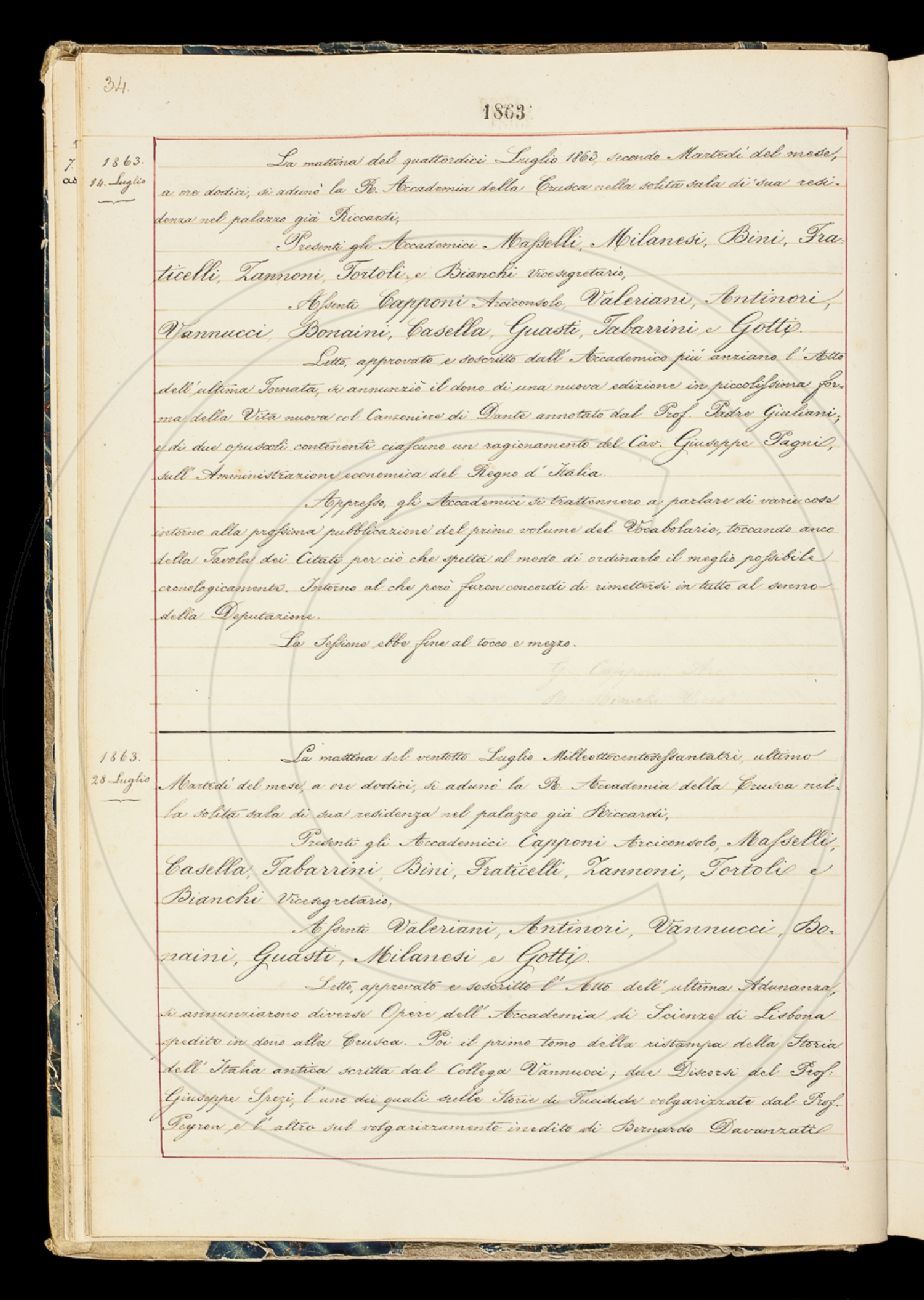 34.
1863
1863.
14. Luglio
La mattina del quattordici Luglio 1863, secondo Martedì del mese,
a ore dodici, si adunò la R. Accademia della Crusca nella solita sala di sua resi-
denza nel palazzo già Riccardi.
Presenti gli Accademici Masselli, Milanesi, Bini, Fra-
ticelli, Zannoni, Tortoli, e Bianchi Vicesegretario,
Assenti Capponi Arciconsolo, Valeriani, Antinori,
Vannucci, Bonaini, Casella, Guasti, Tabarrini e Gotti.
Letto, approvato e soscritto dall'Accademico più anziano l'Atto
dell'ultima Tornata, si annunziò il dono di una nuova edizione in piccolissima for-
ma della Vita nuova col Canzoniere di Dante annotato dal Prof. Padre Giuliani,
e di due opuscoli contenenti ciascuno un ragionamento del Cav. Giuseppe Pagni,
sull'Amministrazione economica del Regno d'Italia.
Appresso, gli Accademici si trattennero a parlare di varie cose
intorno alla prossima pubblicazione del primo volume del Vocabolario, toccando anco
della Tavola dei Citati per ciò che spetta al modo di ordinarlo il meglio possibile
cronologicamente. Intorno al che però furon concordi di rimettersi in tutto al senno
della Deputazione.
La Sessione ebbe fine al tocco e mezzo.
G. Capponi
B. Bianchi
1863.
28 Luglio
La mattina del ventotto Luglio Milleottocentosessantatrè, ultimo
Martedì del mese, a ore dodici, si adunò la R. Accademia della Crusca nel-
la solita sala di sua residenza nel palazzo già Riccardi,
Presenti gli Accademici Capponi Arciconsolo, Masselli,
Casella, Tabarrini, Bini, Fraticelli, Zannoni, Tortoli e
Bianchi Vicesegretario,
Assenti Valeriani, Antinori, Vannucci, Bo-
naini, Guasti, Milanesi e Gotti.
Letto, approvato e soscritto l'Atto dell'ultima Adunanza,
si annunziarono diverse Opere dell'Accademia di Scienze di Lisbona
spedite in dono alla Crusca. Poi il primo tomo della ristampa della Storia
dell'Italia antica scritta dal Collega Vannucci; due Discorsi del Prof.
Giuseppe Spezi, l'uno dei quali sulle Storie di Tucidide volgarizzate dal Prof.
Peyron, e l'altro sul volgarizzamento inedito di Bernardo Davanzati